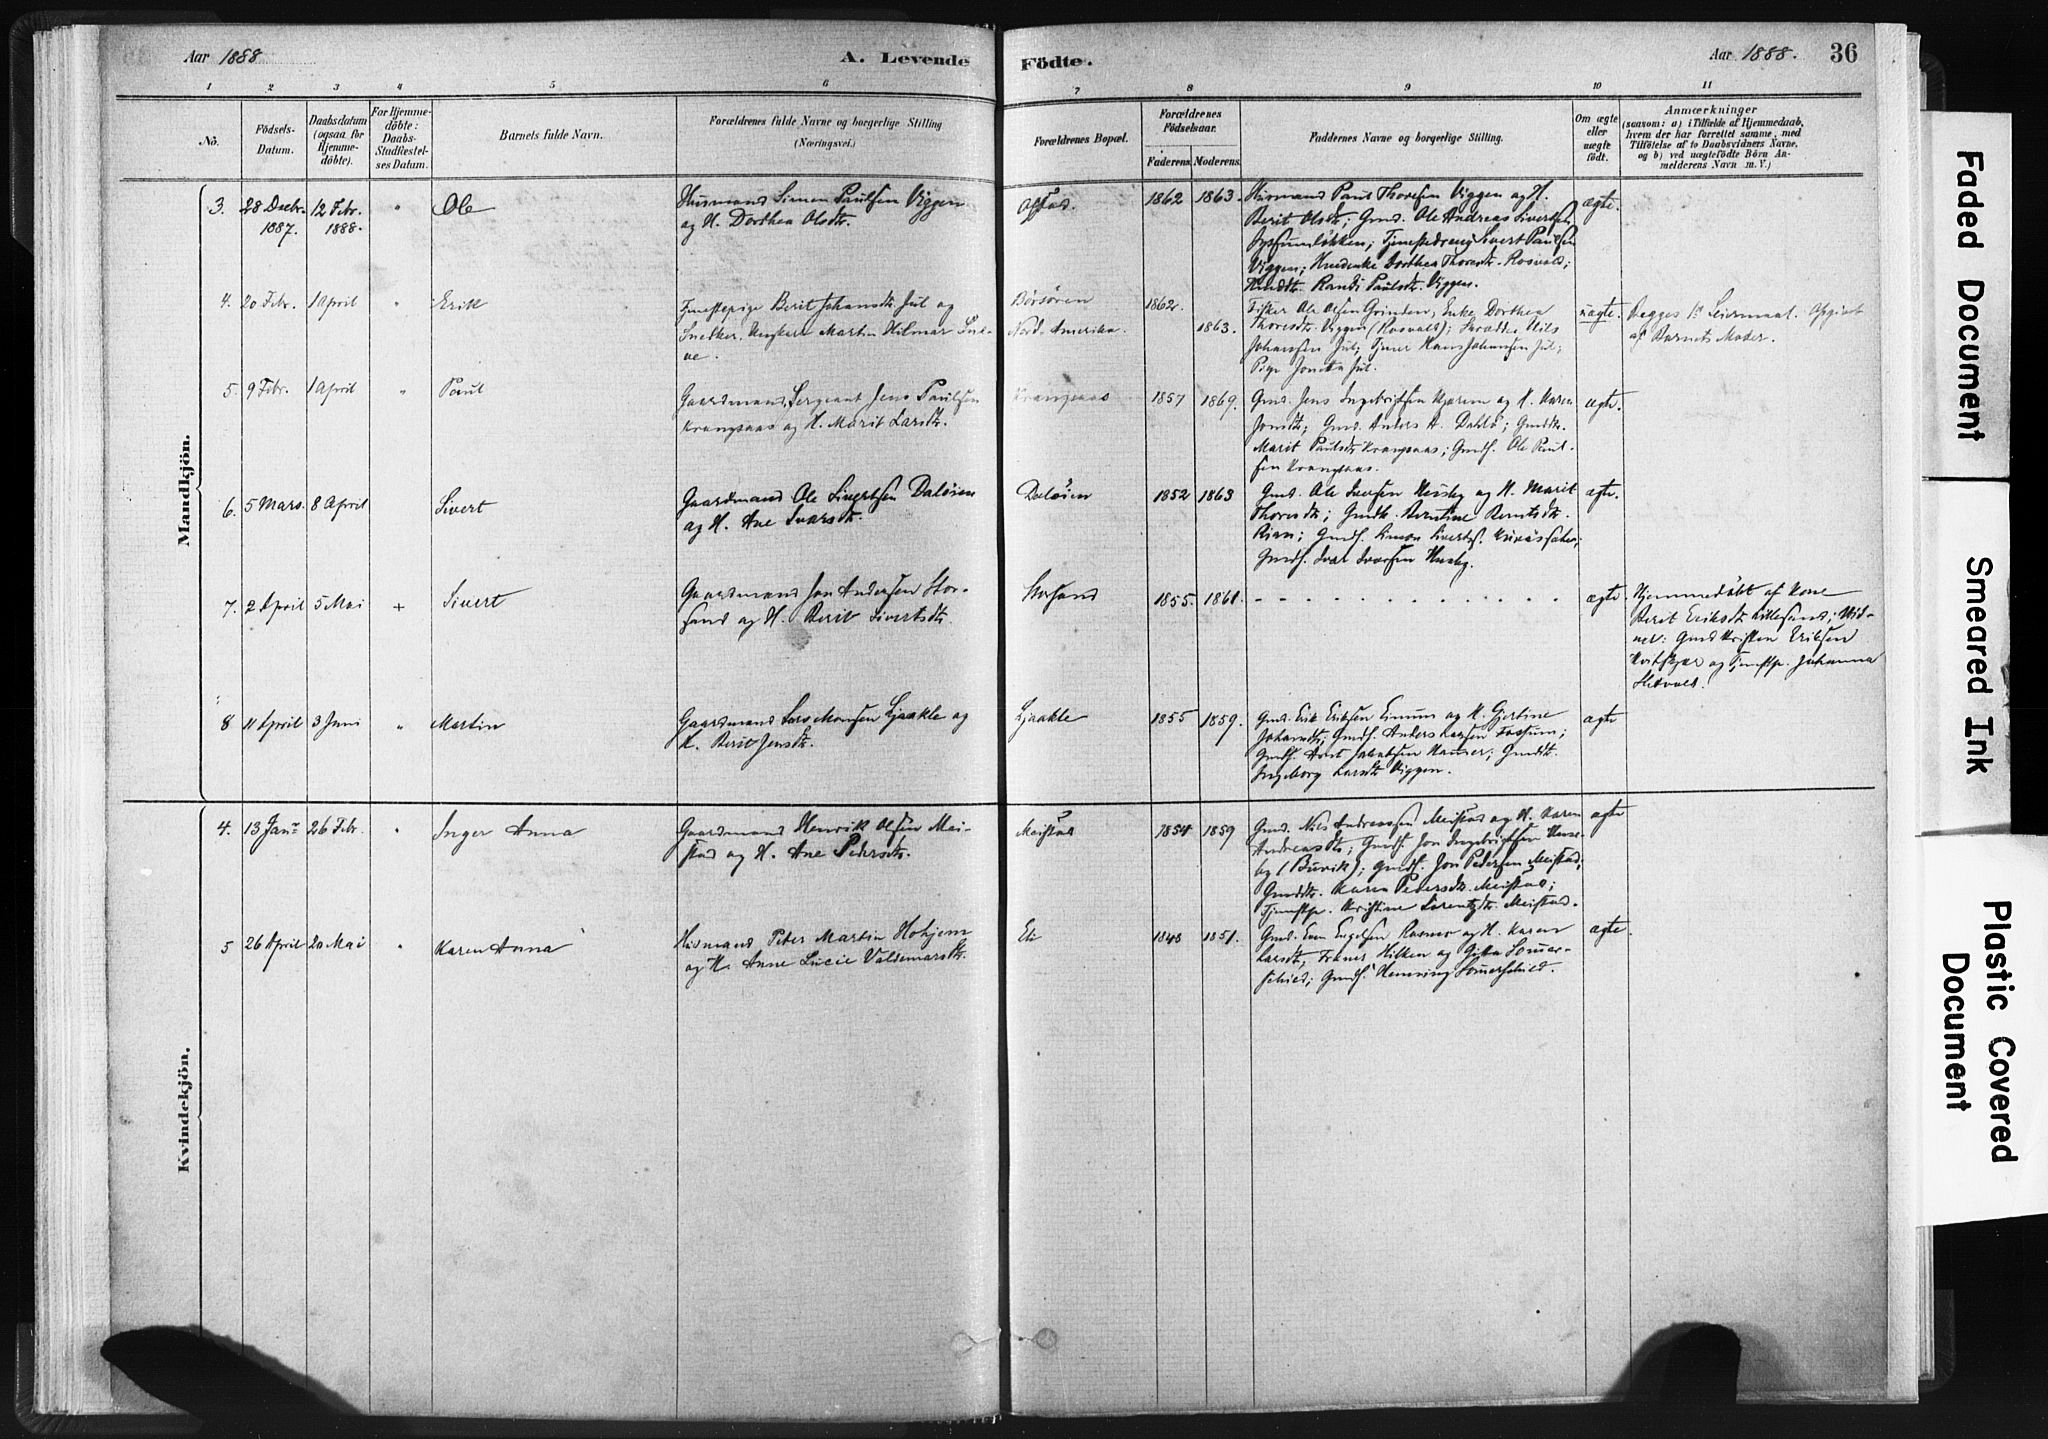 Aar 1888
A. Levende
Födte.
Aar 1888.
36
1 2 3 4 5 6 7 8 9 10 11
No.
Födsels-
Datum.
Daabsdatum
(ogsaa for
Hjemme-
döbte).
For Hjemme-
döbte:
Daabs-
Stadfæstel-
ses Datum.
Barnets fulde Navn.
Forældrenes fulde Navne og borgerlige Stilling
(Næringsvei.)
Forældrenes Bopæl.
Forældrenes
Födselsaar.
Faderens. Moderens.
Faddernes Navne og borgerlige Stilling.
Om ægte
eller
uægte
födt.
Anmærkninger
(saasom: a) i Tilfælde af Hjemmedaab,
hvem der har forrettet samme, med
Tilföielse af to Daabsvidners Navne,
og b) ved uægtefödte Börn An-
melderens Navn m. V.)
Mandkjön.
3. 28 Decbr. 1887. 12 Febr. 1888. " Ole
Husmand Simon Paulsen Viggen
og H. Dorthea Olsdtr.
1862 1863.
Husmand Paul Thoresen Viggen og H.
Berit Olsdtr; Gmd. Ole Andreas Sivertsen
Tjenestedreng Sivert Paulsen
Viggen; Dorthea Thoresdtr. Rosvald;
Randi Paulsdtr. Viggen.
ægte.
4. 20 Febr. 1 April " Erik
Tjenestepige Berit Johansdtr Jul og
Snedker, Ungkarl Martin Hilmar
Börsören
Nord. Amerika.
1862. 1863.
Fisker Ole Olsen Grinden, Enke Dorthea
Thoresdtr. Viggen (Rosvald); Skrædder Nils
Johansen Jul; Tjener Hans Johansen Jul;
Pige Jonetta Jul.
uægte.
Begges 1ste Leiermaal. Opgivet
af Barnets Moder.
5. 9 Febr. 1 April " Paul
Gaardmand, Sergeant Jens Paulsen
Krangsaas og H. Marit Larsdtr.
Krangsaas
1857 1869.
Gmd. Jens Ingebrigtsen og H. Karen
Jonsdtr; Gmd. Anders A. Dahlö; Gmddtr.
Marit Paulsdtr Krangsaas; Gmds. Ole Paul-
sen Krangsaas.
ægte.
6. 5 Mars. 8 April Sivert
Gaardmand Ole Sivertsen Dalöien
og H. Ane Ivarsdtr.
Dalöien
1852 1863
Gmd. Ole Iversen Husby og H. Marit
Thoresdtr; Gmdk. Berntine Berntsdtr.
Rian; Gmds. Simon Sivertsen
Gmds. Ivar Ivarsen Husby.
ægte.
7. 2 April 5 Mai + Sivert
Gaardmand Jon Andersen Stor-
sand og H. Berit Sivertsdtr.
Storsand
1855. 1861.
ægte.
Hjemmedöbt af Kone
Berit Eriksdtr Lillesand; Vid-
ner: Gmd Kristen Eriksen
Kvitskjær og Tjenestp. Johanna
8 11 April 3 Juni " Martin
Gaardmand Lars Monsen Ljaakle og
H. Berit Jensdtr.
Ljaakle
1855 1859.
Gmd. Erik Eriksen Einum og H. Gjertine
Johansdtr; Gmds. Anders Larsen Fossum;
Gmds. Arnt Jakobsen Gmddtr.
Ingeborg Larsdtr Viggen.
ægte
Kvindekjön.
4. 13 Janr 26 Febr. " Inger Anna
Gaardmand Henrik Olsen Mei-
stad og H. Ane Pedersdtr.
Meistad
1854 1859
Gmd. Nils Andreassen Meistad og H. Karen
Andreasdtr; Gmds. Jon Ingebrigtsen
(Buvik); Gmds. Jon Pedersen Meistad;
Gmddtr. Karen Pedersdtr. Meistad;
Tjenestp. Kristine Lorentsdtr. Meistad.
ægte
5 26 April 20 Mai " Karen Anna
Husmand Peter Martin Hohjem
og H. Anne Lucie Valdemarsdtr.
Eli
1848 1851.
Gmd. Even Engelsen Rasmo og H. Karen
Larsdtr, Hilken og Gitta Somer-
schied; Gmds. Henning Somerschied.
ægte.
Faded Document
Smeared Ink
Plastic Covered
Document